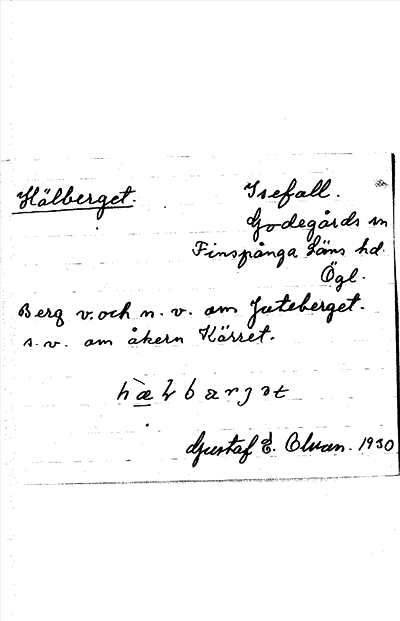 Hälberget.
Isefall.
Godegårds sn
Finspånga Läns hd.
Ögl.
Berg v. och n. v. om Jateberget.
s. v. om åkern Kärret.
Gustaf E. 1930